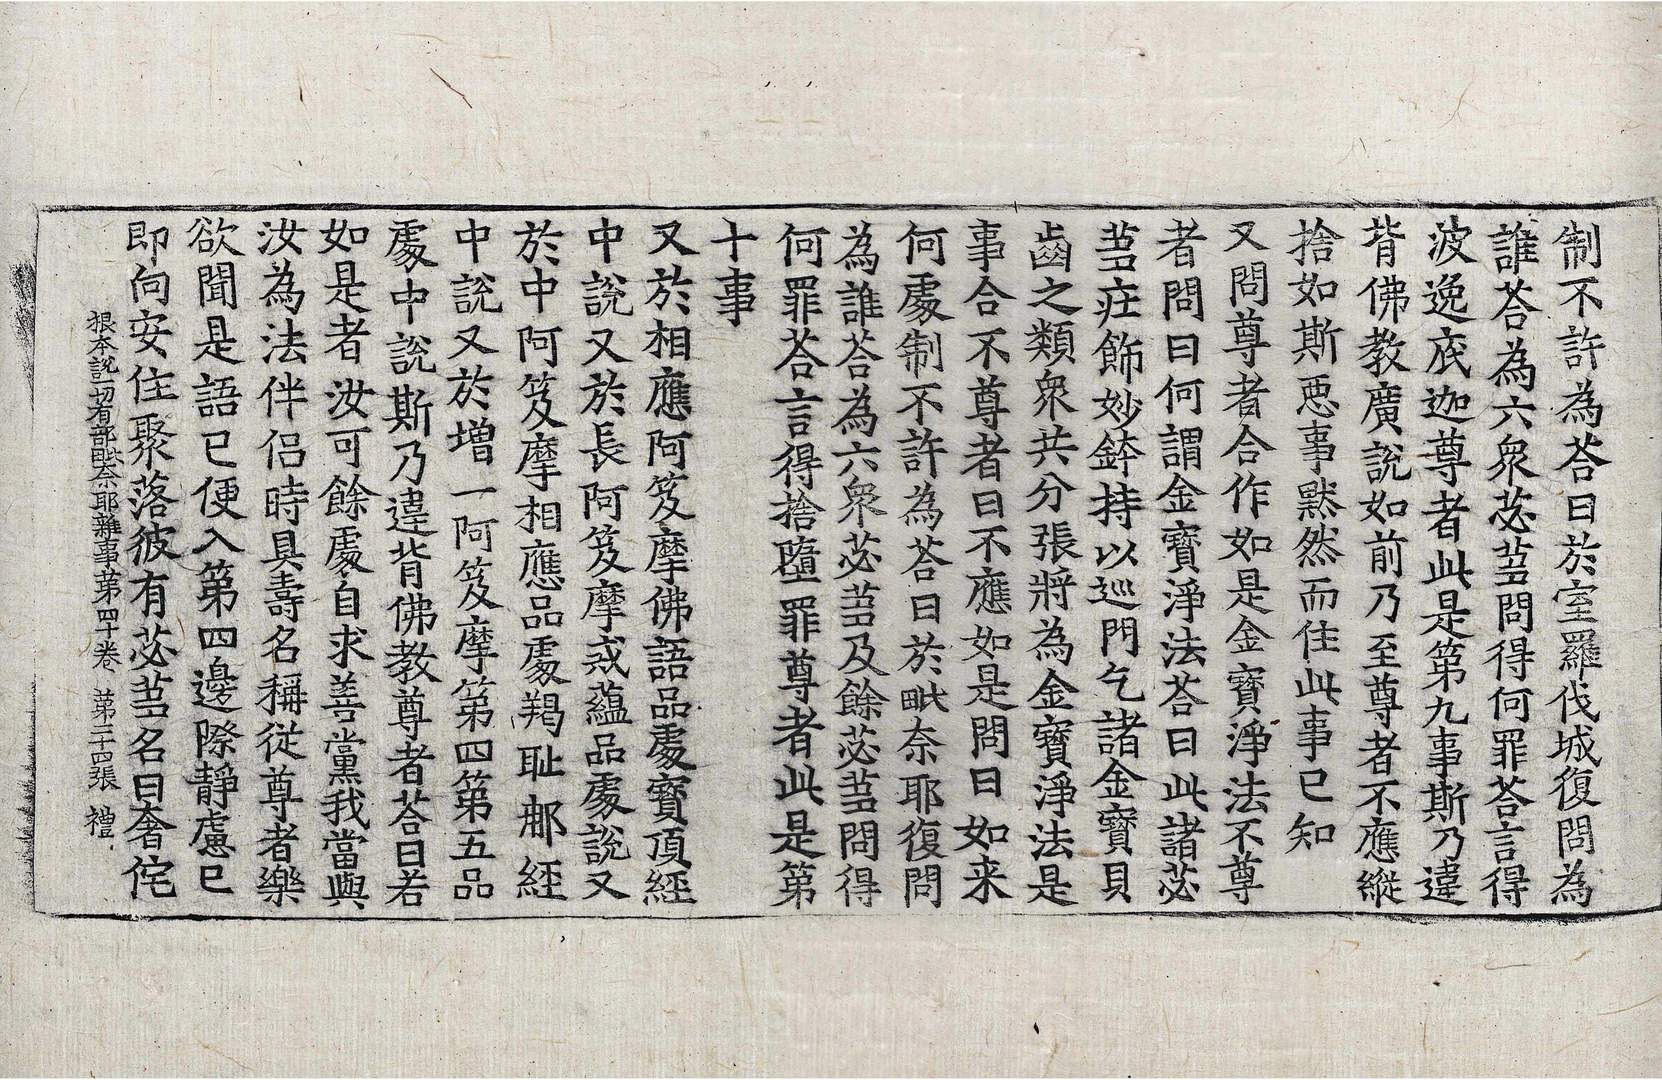 制不許為荅曰於室羅伐城復問為
誰荅為六衆苾芻問得何罪荅言得
波逸底迦尊者此是第九事斯乃違
背佛教廣說如前乃至尊者不應縱
捨如斯惡事默然而住此事已知
又問尊者合作如是金寶淨法不尊
者問曰何謂金寶淨法荅曰此諸苾
芻莊飾妙鉢持以巡門乞諸金寶貝
齒之類衆共分張將為金寶淨法是
事合不尊者曰不應如是問曰如来
何處制不許為荅曰於毗奈耶復問
為誰荅為六衆苾芻及餘苾芻問得
何罪荅言得捨墮罪尊者此是第
十事
又於相應阿笈摩佛語品處寶頂經
中說又於長阿笈摩戒蘊品處說又
於中阿笈摩相應品處羯耻那經
中說又於增一阿笈摩第四第五品
處中說斯乃違背佛教尊者荅曰若
如是者汝可餘處自求善黨我當與
汝為法伴侶時具壽名稱從尊者樂
欲聞是語已便入第四邊際靜慮已
即向安住聚落彼有苾芻名曰奢侘
根本說一切有部毗奈耶雜事苐四十卷 苐二十四張 禮